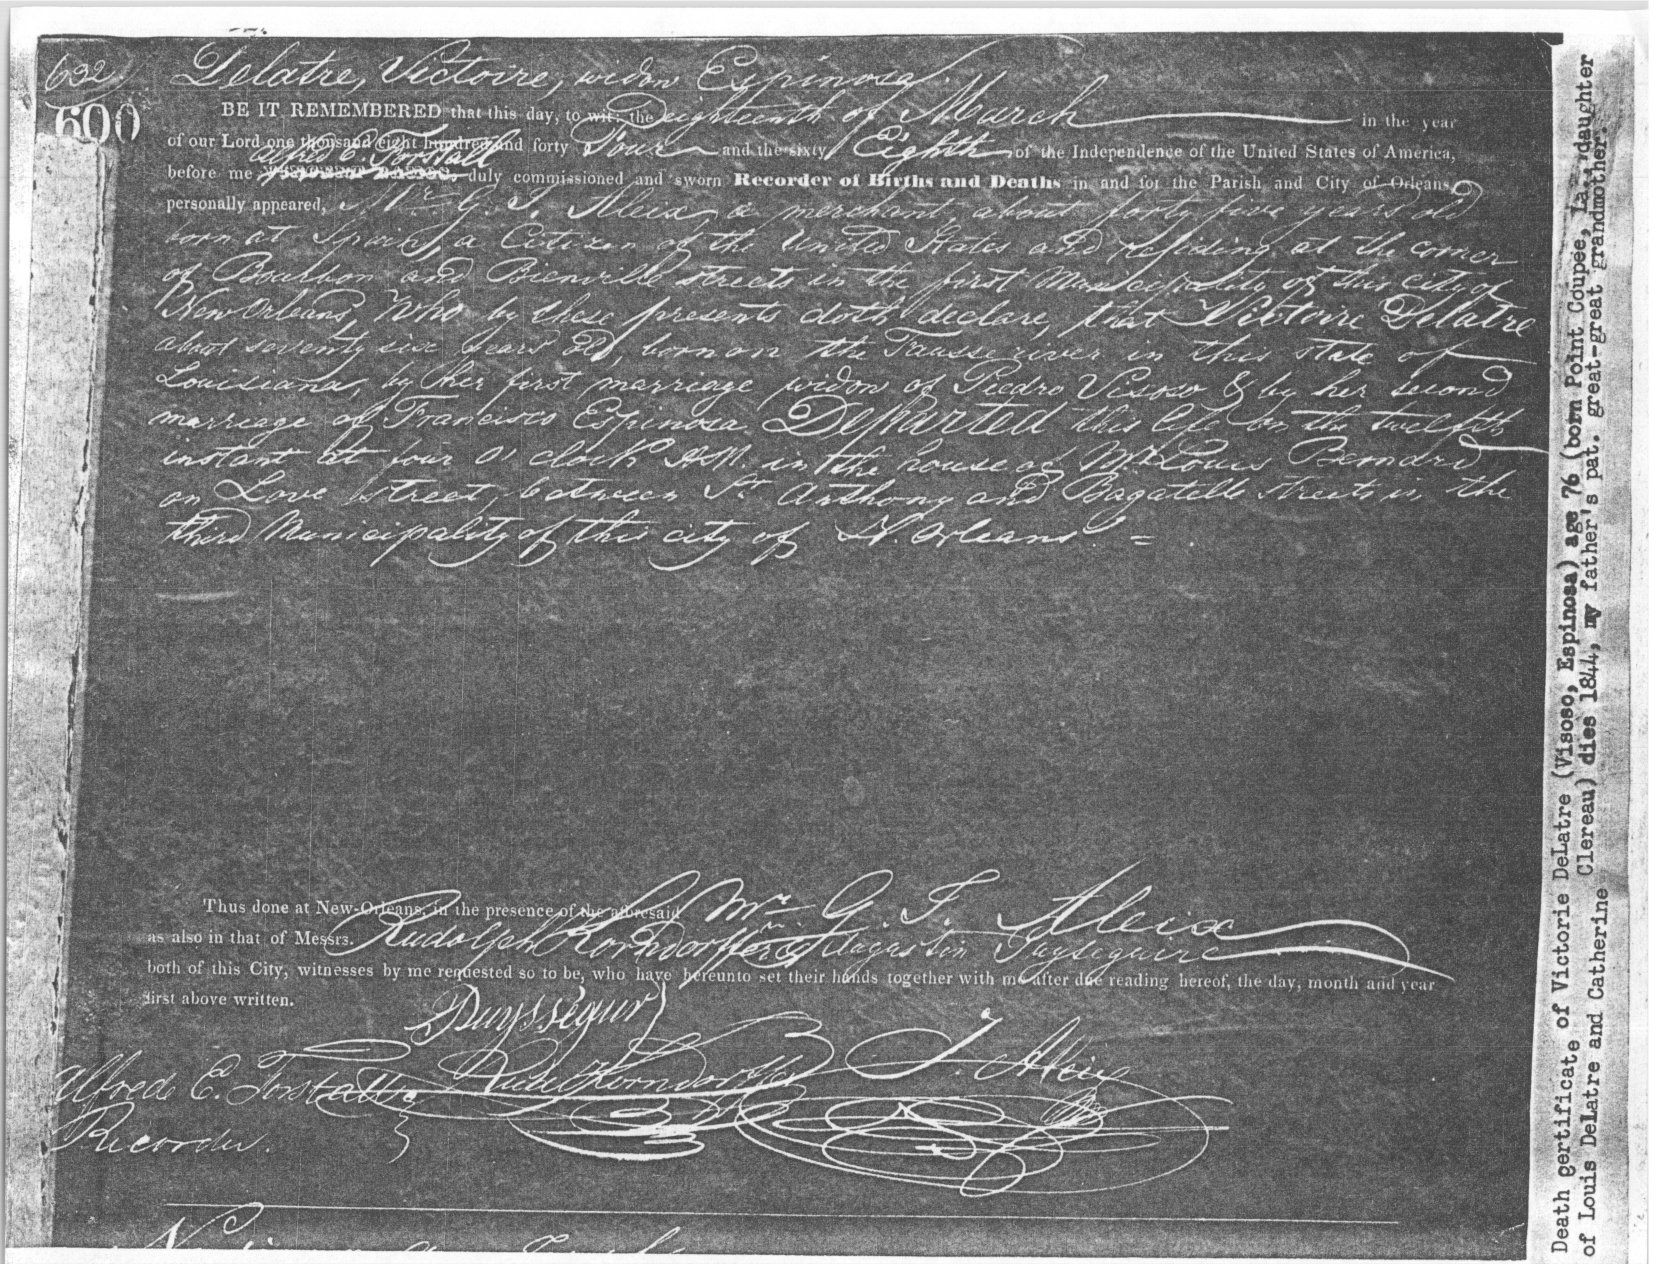 632. Delatre, Victoire, widow Espinosa.
600
BE IT REMEMBERED that this day, to wit: the Deighteenth of March in the year
of our Lord one thousand eight hundred and forty Four and the sixty Eighth of the Independence of the United States of America,
Alfred E. Forstall
before me duly commissioned and sworn Recorder of Births and Deaths in and for the Parish and City of Orleans,
personally appeared, Mr. G. F. Aleix, a merchant, about forty five years old
born at Spain, a Citizen of the United States and residing at the corner
of Bourbon and Bienville streets in the first Municipality of this city of
New Orleans, Who by these presents doth declare, that Victoire Delatre
about seventy six years old, born on the Fausse river in this state of
Louisiana, by her first marriage widow of Piedro Visoso & by her second
marriage of Francisco Espinosa. Departed this life on the twelfth
instant at four O'clock A.M. in the house of Mr. Louis
on Love street, between St. Anthony and Bagatelle streets in the
third Municipality of this city of N. Orleans =
Thus done at New-Orleans, in the presence of the aforesaid Mr. G. F. Aleix
as also in that of Messrs. Rudolph Korndorffer & Augustin
both of this City, witnesses by me requested so to be, who have hereunto set their hands together with me after due reading hereof, the day, month and year
first above written.
Puysségur
Alfred E. Forstall Rud Korndorffer F. Aleix
Recorder.
Death certificate of Victorie DeLatre (Visoso, Espinosa) age 76 (born Point Coupee, La., daughter
of Louis DeLatre and Catherine Clereau) dies 1844, my father's pat. great-great grandmother.